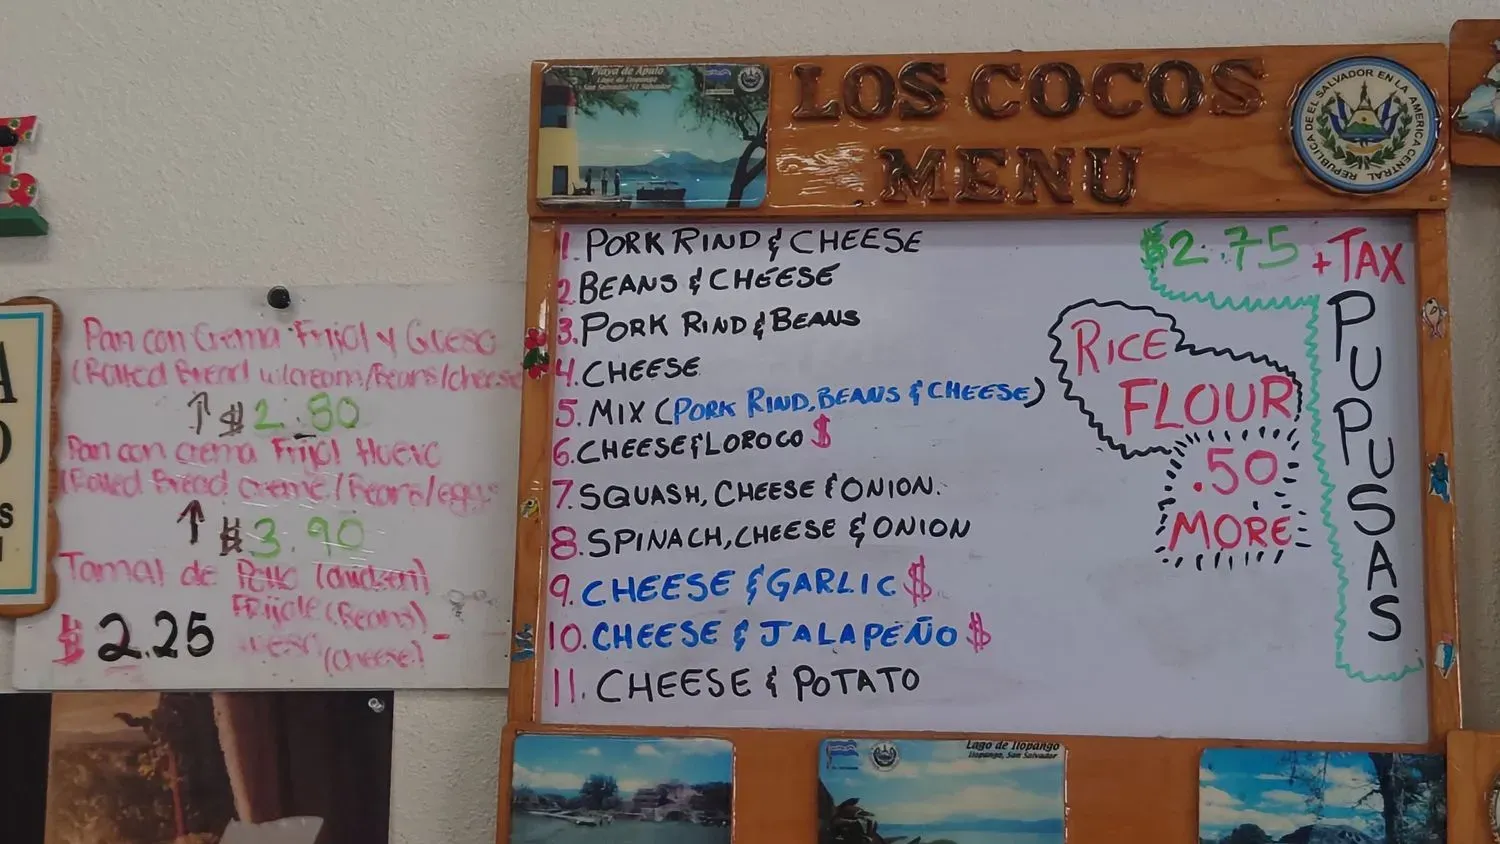 Playa de Apulo
Lago de Ilopango
San Salvador, El Salvador
LOS COCOS
MENU
REPUBLICA DE EL SALVADOR EN LA AMERICA CENTRAL
1. PORK RIND & CHEESE
2. BEANS & CHEESE
3. PORK RIND & BEANS
4. CHEESE
5. MIX (PORK RIND, BEANS & CHEESE)
6. CHEESE & LOROCO $
7. SQUASH, CHEESE & ONION.
8. SPINACH, CHEESE & ONION
9. CHEESE & GARLIC $
10. CHEESE & JALAPEÑO $
11. CHEESE & POTATO
$2.75 + TAX
PUPUSAS
RICE
FLOUR
.50
MORE
Pan con Crema Frijol y Queso
(Rolled Bread w/cream/Beans/cheese
$2.80
Pan con crema Frijol Huevo
(Rolled Bread creme/Beans/eggs
$3.90
Tamal de Pollo (chicken)
FRijole (Beans)
(cheese)
$2.25
Lago de Ilopango
Ilopango, San Salvador